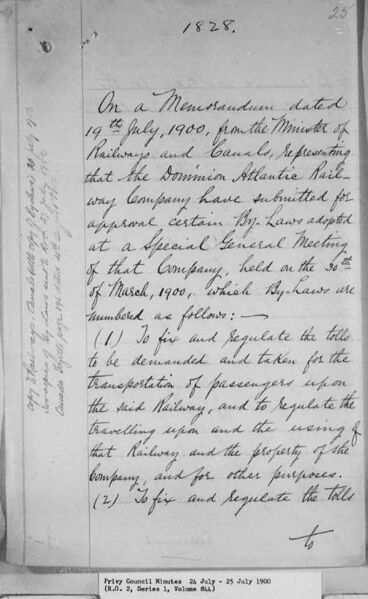 25
1828.
On a Memorandum dated
19th July, 1900, from the Minister of
Railways and Canals, representing
that the Dominion Atlantic Rail-
way Company have submitted for
approval certain By-Laws adopted
at a Special General Meeting
of that Company, held on the 30th
of March, 1900, which By-Laws are
numbered as follows: —
(1) To fix and regulate the tolls
to be demanded and taken for the
transportation of passengers upon
the said Railway, and to regulate the
travelling upon and the using of
that Railway and the property of the
Company, and for other purposes.
(2) To fix and regulate the tolls
to
Privy Council Minutes 24 July - 25 July 1900
(R.G. 2, Series 1, Volume 844)